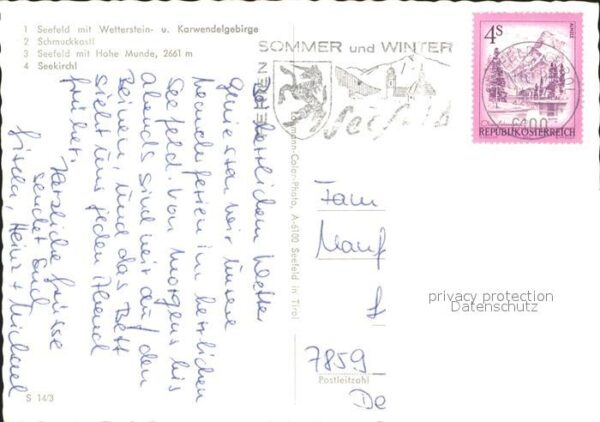 1 Seefeld mit Wetterstein- u. Karwendelgebirge
2 Schmuckkastl
3 Seefeld mit Hohe Munde, 2661 m
4 Seekirchl
SOMMER und WINTER
Seefeld
6100
4S
REPUBLIK ÖSTERREICH
Bei herrlichem Wetter
genießen wir unsere
im herrlichen
Seefeld. Von morgens bis
abends sind wir auf den
Beinen, und das Bett
sieht uns jeden Abend
früher.
Herzliche Grüsse
sendet Euch
Gisela, Heinz + Michael
-Color-Photo, A-6100 Seefeld in Tirol
Fam
Manf
7859
Postleitzahl
De
privacy protection
Datenschutz
S 14/3